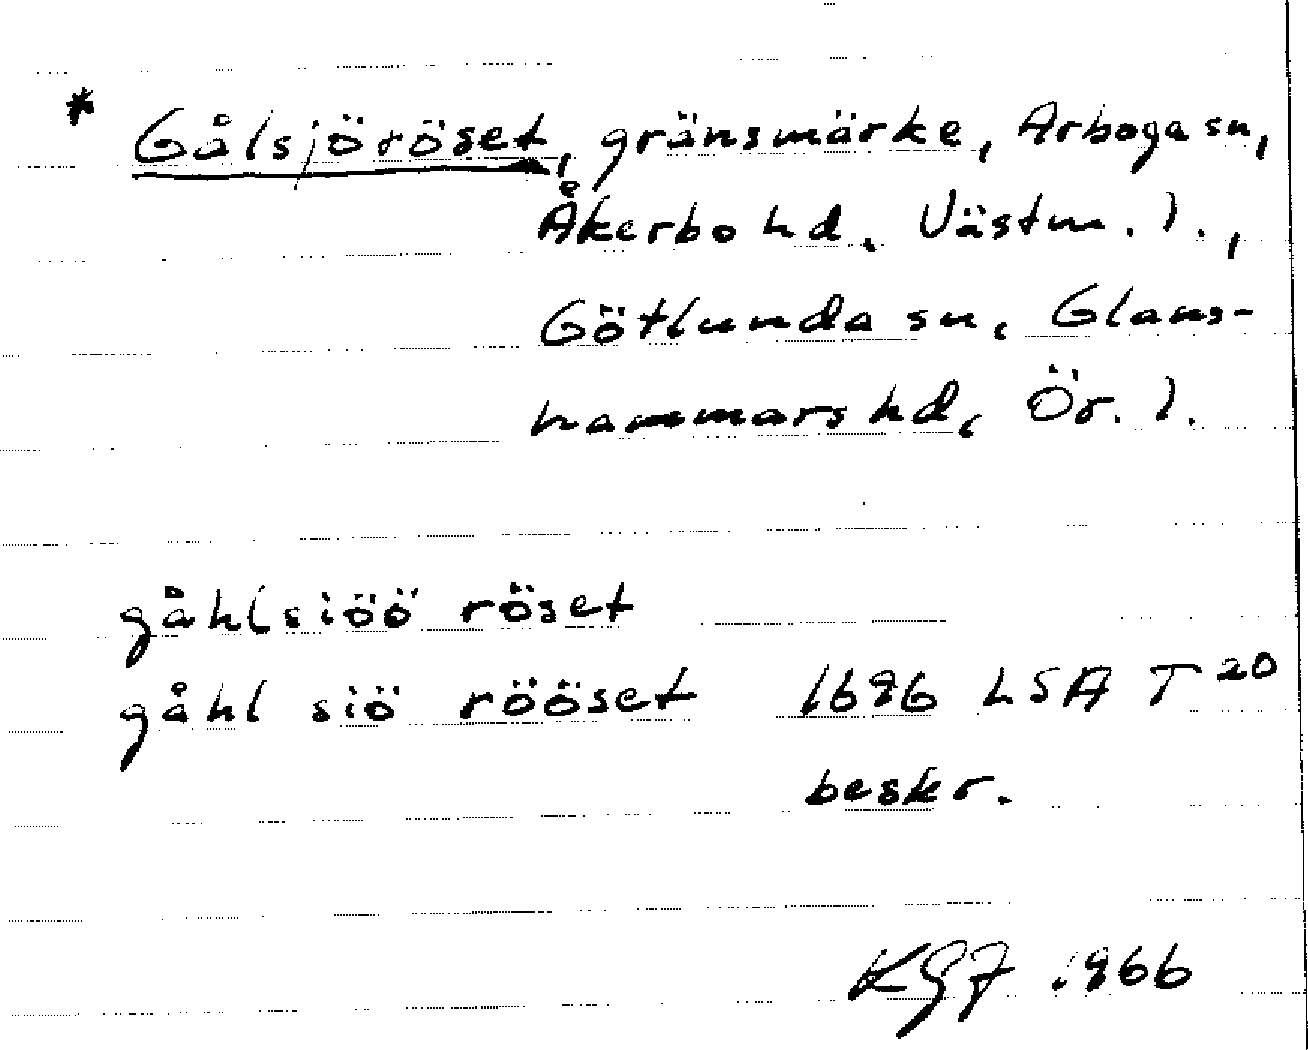 * Gålsjöröset, gränsmärke, Arboga sn,
Åkerbo hd, Västm. l.,
Götlunda sn, Glans-
hammars hd, Ör. l.
gåhlsiöö röset
gåhl siö rööset 1696 LSA T 20
beskr.
1966